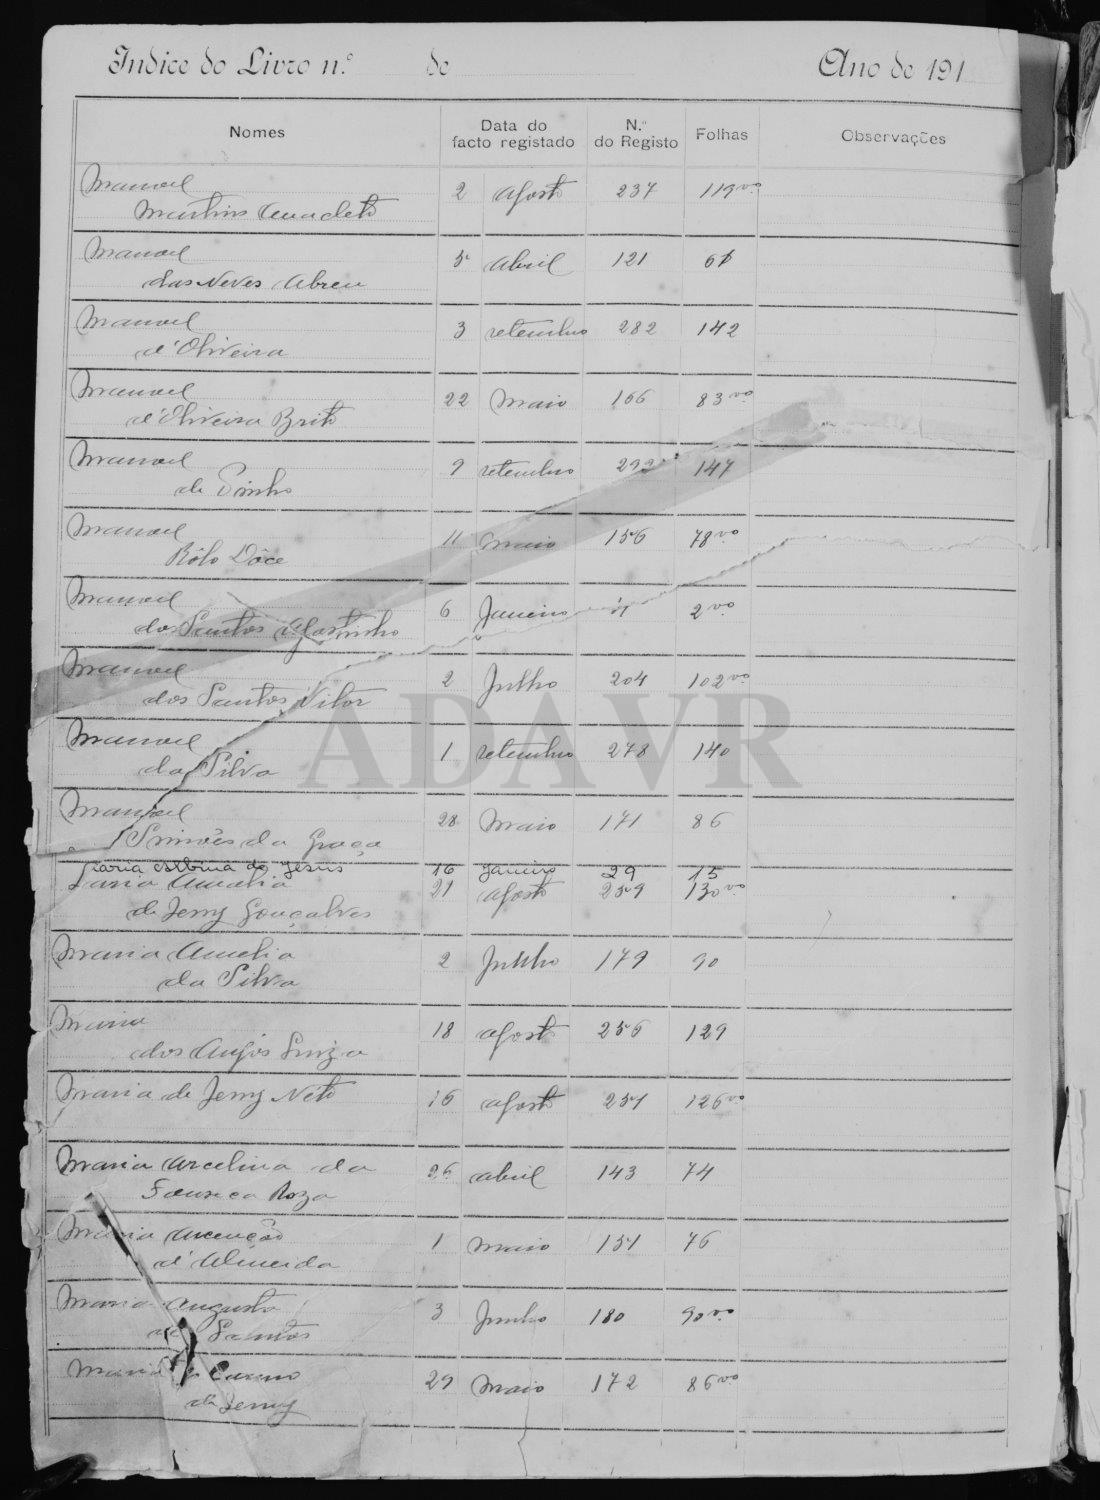 Indice do Livro n.º de Ano de 191
Nomes Data do facto registado N.º do Registo Folhas Observações
Manoel 2 Agosto 237 119 vº
Martins Anacleto
Manoel 5 Abril 121 61
das Neves Abreu
Manoel 3 setembro 282 142
d'Oliveira
Manoel 22 Maio 166 83 vº
d'Oliveira Brito
Manoel 9 setembro 292 147
de Pinho
Manoel 11 Maio 156 78 vº
Rôlo Dôce
Manoel 6 Janeiro 4 2 vº
dos Santos Agostinho
Manoel 2 Julho 204 102 vº
dos Santos Vitor
Manoel 1 setembro 278 140
da Silva
Manoel 28 Maio 171 86
Simões da Graça
Maria Albina de Jesus 16 Janeiro 29 15
Maria Amelia 21 Agosto 259 130 vº
de Jesus Gonçalves
Maria Amelia 2 Junho 179 90
da Silva
Maria 18 Agosto 256 129
dos Anjos Luiza
Maria de Jesus Neto 16 Agosto 251 126 vº
Maria Arcelina da 26 Abril 143 74
Fonseca Roza
Maria Ascenção 1 Maio 151 76
d'Almeida
Maria Augusta 3 Junho 180 90 vº
Santos
Maria Carmo 29 Maio 172 86 vº
de Jesus
ADAVR